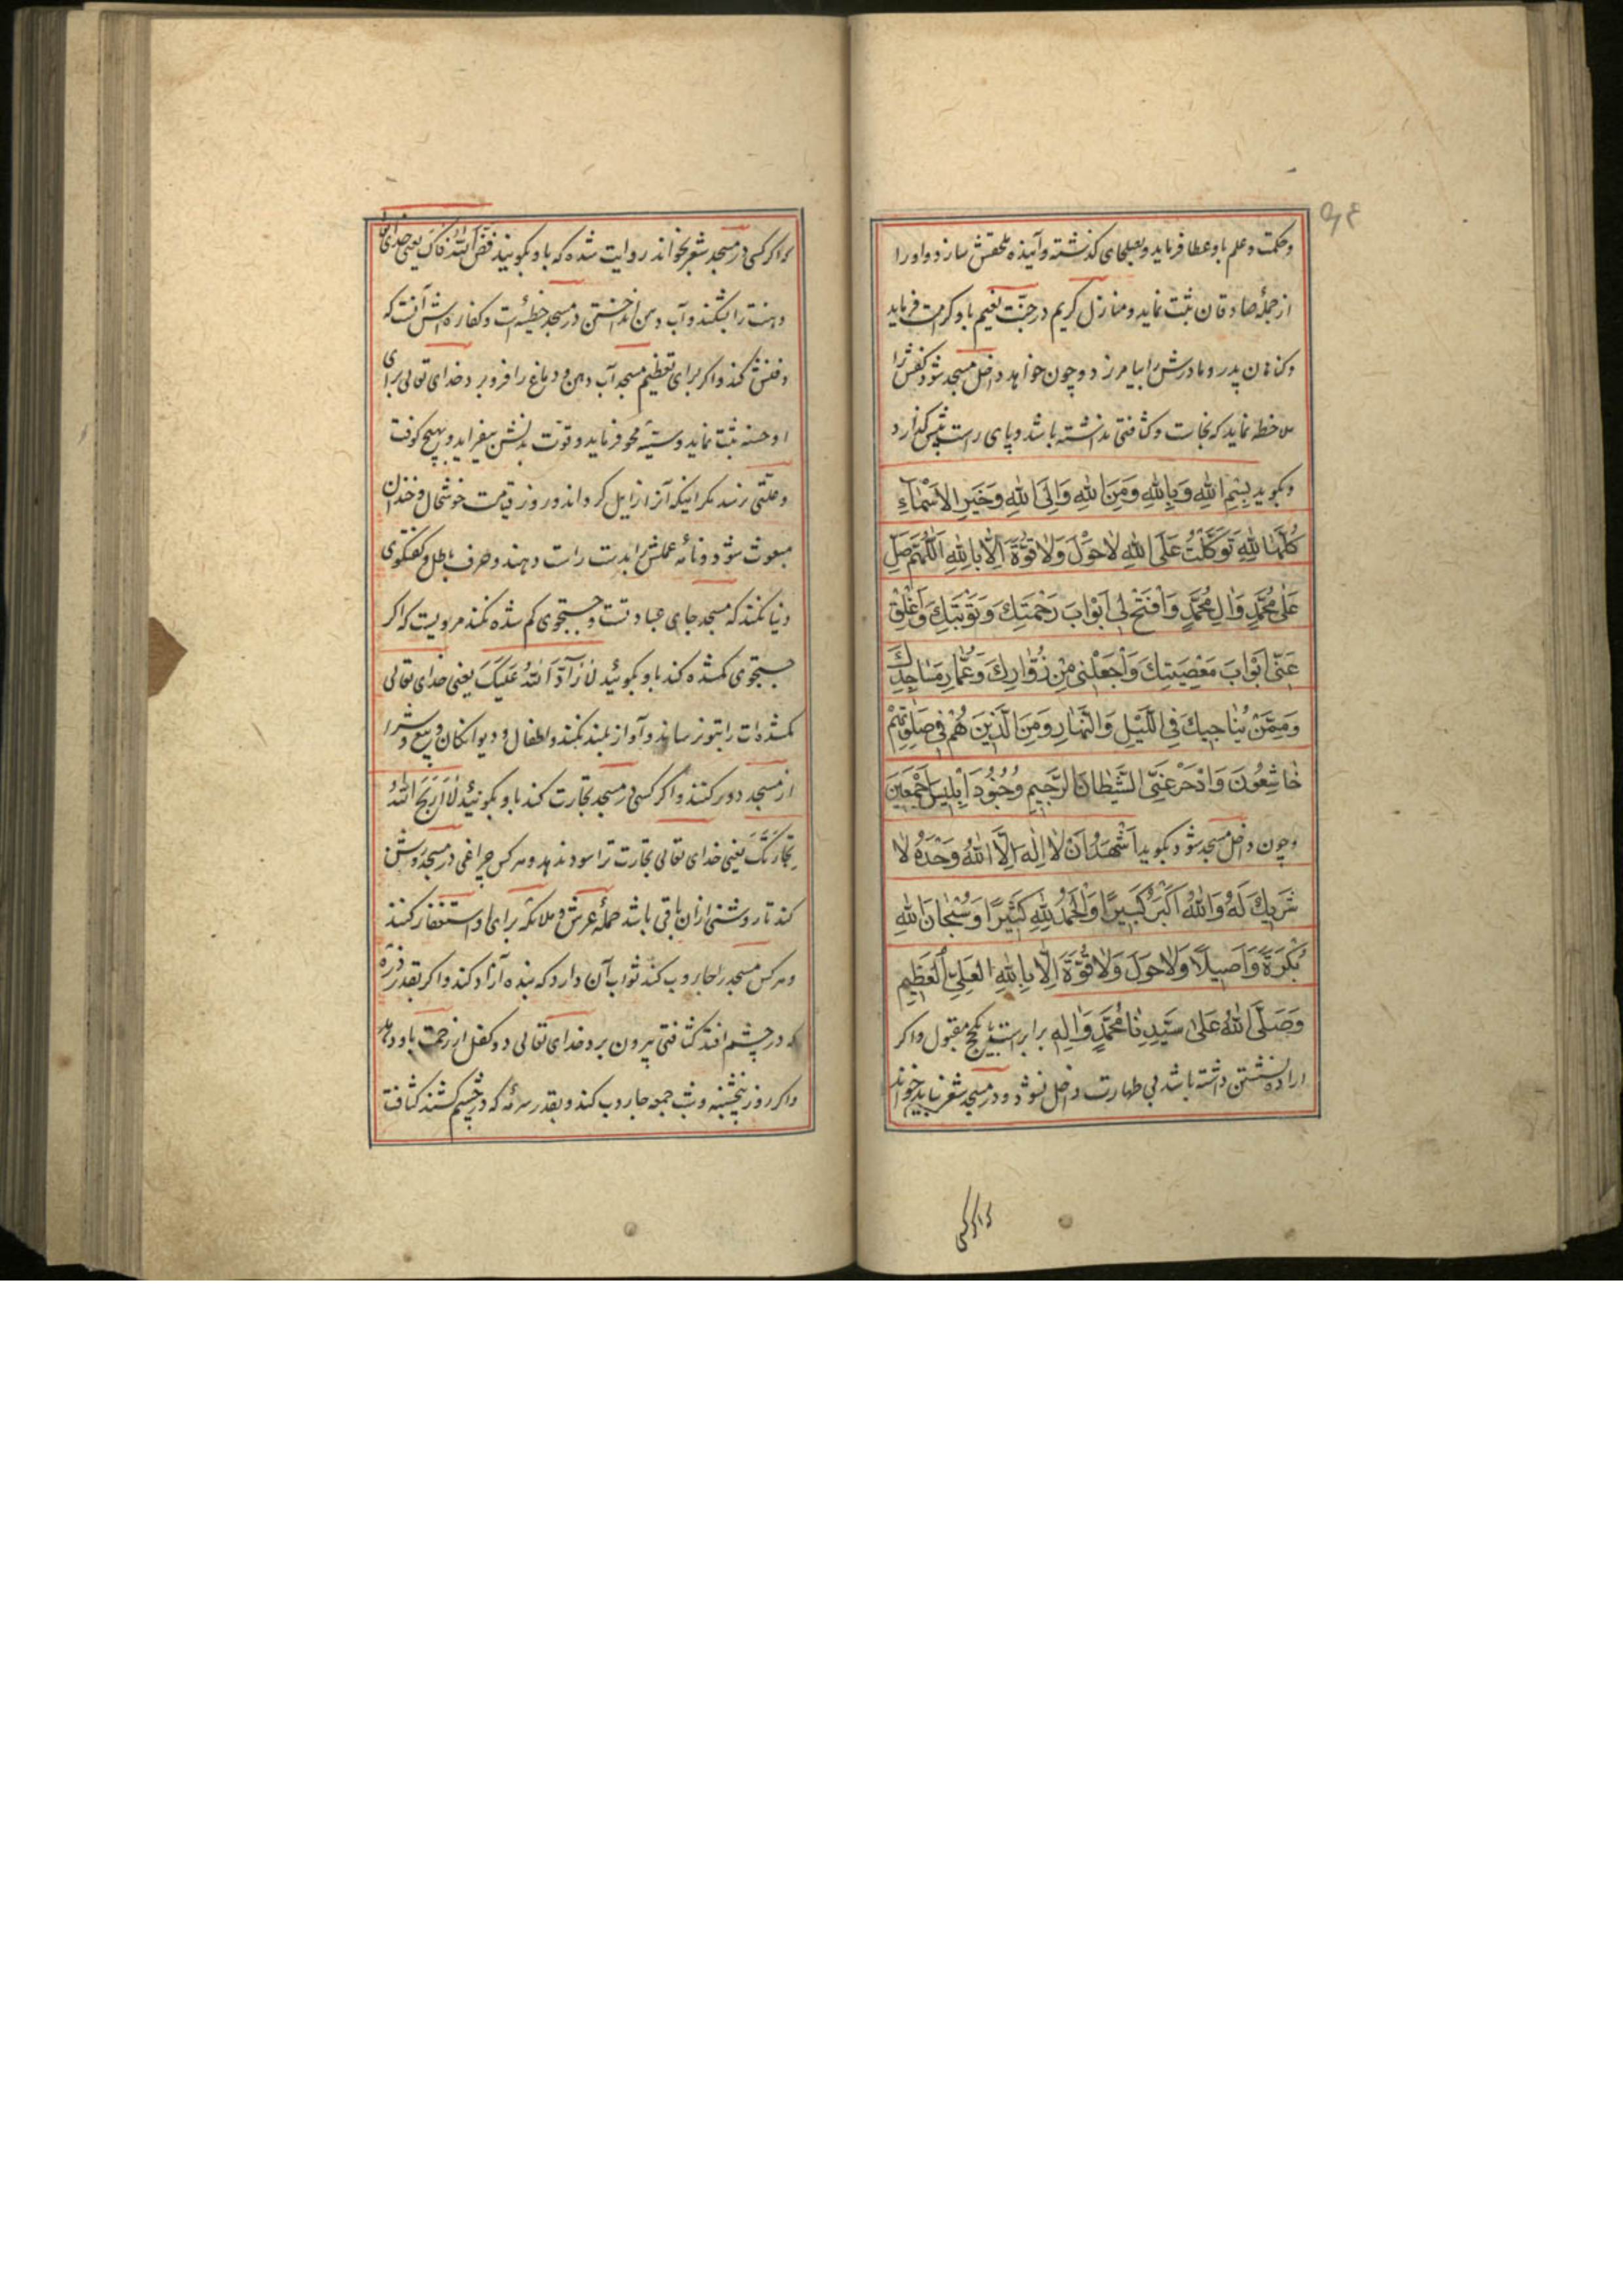 و حکمت و علم باو عطا فرماید و بصلحای کذشته و آینده ملحقش سازد و او را
از جملهٔ صادقان ثبت نماید و منازل کریم در جنّت نعیم باو کرامت فرماید
و کناهان پدر و مادرش را بیامرزد و چون خواهد داخل مسجد شود کفش را
ملاحظه نماید که نجاست و کثافتی نداشته باشد و پای راست پیش کذارد
و بکوید بِسْمِ اللهِ وَبِاللهِ وَمِنَ اللهِ وَاِلَى اللهِ وَخَيْرِ الاَسْمَاءِ
كُلِّهَا لِلّهِ تَوَكَّلْتُ عَلَى اللهِ لاحَوْلَ وَلاقُوَّةَ اِلّا بِاللهِ اَللّهُمَّ صَلِّ
عَلى مُحَمَّدٍ وَالِ مُحَمَّدٍ وَافْتَحْ لى اَبْوابَ رَحْمَتِكَ وَتَوْبَتِكَ وَاَغْلِقْ
عَنّى اَبْوابَ مَعْصِيَتِكَ وَاجْعَلْنى مِنْ زُوّارِكَ وَعُمّارِ مَسَاجِدِكَ
وَمِمَّنْ يُناجيكَ فِى اللَّيْلِ وَالنَّهارِ وَمِنَ الَّذينَ هُمْ فى صَلاتِهِمْ
خاشِعُونَ وَادْحَرْ عَنِّى الشَّيْطانَ الرَّجيمَ وَجُنُودَ اِبْليسَ اَجْمَعينَ
و چون داخل مسجد شود بکوید اَشْهَدُ اَنْ لا اِلهَ اِلَّا اللهُ وَحْدَهُ لا
شَريكَ لَهُ وَاللهُ اَكْبَرُ كَبيرًا وَالْحَمْدُ لِلّهِ كَثيرًا وَسُبْحانَ اللهِ
بُكْرَةً وَاَصيلًا وَلاحَوْلَ وَلاقُوَّةَ اِلّا بِاللهِ العَلِىِّ الْعَظيمِ
وَصَلَّى اللهُ عَلى سَيِّدِنا مُحَمَّدٍ وَالِهِ برابر است با یک حج مقبول و اکر
ارادهٔ نشستن داشته باشد بی طهارت داخل نشود و در مسجد شعر نباید خواند
که اکر کسی
که اکر کسی در مسجد شعر بخواند روایت شده که باو بکویند فَضَّ اللهُ فاکَ یعنی خدای تعالی
دهنت را بشکند و آب دهن انداختن در مسجد خطیئه است و کفاره اش آنست که
دفنش کند و اکر برای تعظیم مسجد آب دهن و دماغ را فرو برد خدای تعالی برای
او حسنه ثبت نماید و سیّئه محو فرماید و قوّت بدنش بیفزاید و بهیچ کوفت
و علّتی نرسد مکر اینکه آنرا زایل کرداند و روز قیامت خوشحال و خندان
مبعوث شود و نامهٔ عملش را بدست راست دهند و حرف باطل و کفتکوی
دنیا نکنند که مسجد جای عبادتست و جستجوی کم شده نکنند مرویست که اکر
جستجوی کمشده کند باو بکوئید لا رَادَّ اللهُ عَلَيْكَ یعنی خدای تعالی
کمشده ات را بتو نرساند و آواز بلند نکنند و اطفال و دیوانکان و بیع و شرا
از مسجد دور کنند و اکر کسی در مسجد تجارت کند باو بکوئید لا اَرْبَحَ اللهُ
تِجارَتَكَ یعنی خدای تعالی تجارت ترا سود ندهد و هر کس چراغی در مسجد روشن
کند تا روشنی ازان باقی باشد حملهٔ عرش و ملائکه برای او استغفار کنند
و هر کس مسجد را جاروب کند ثواب آن دارد که بنده آزاد کند و اکر بقدر ذرّه
که در چشم افتد کثافتی بیرون برد خدای تعالی دو کفل از رحمت باو دهد
و اکر روز پنجشنبه و شب جمعه جاروب کند و بقدر سرمه که در چشم کشند کثافت